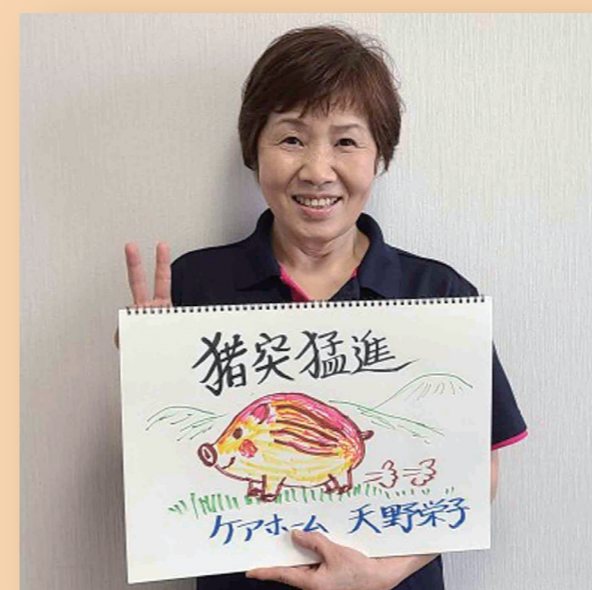 猪突猛進
ケアホーム 天野栄子